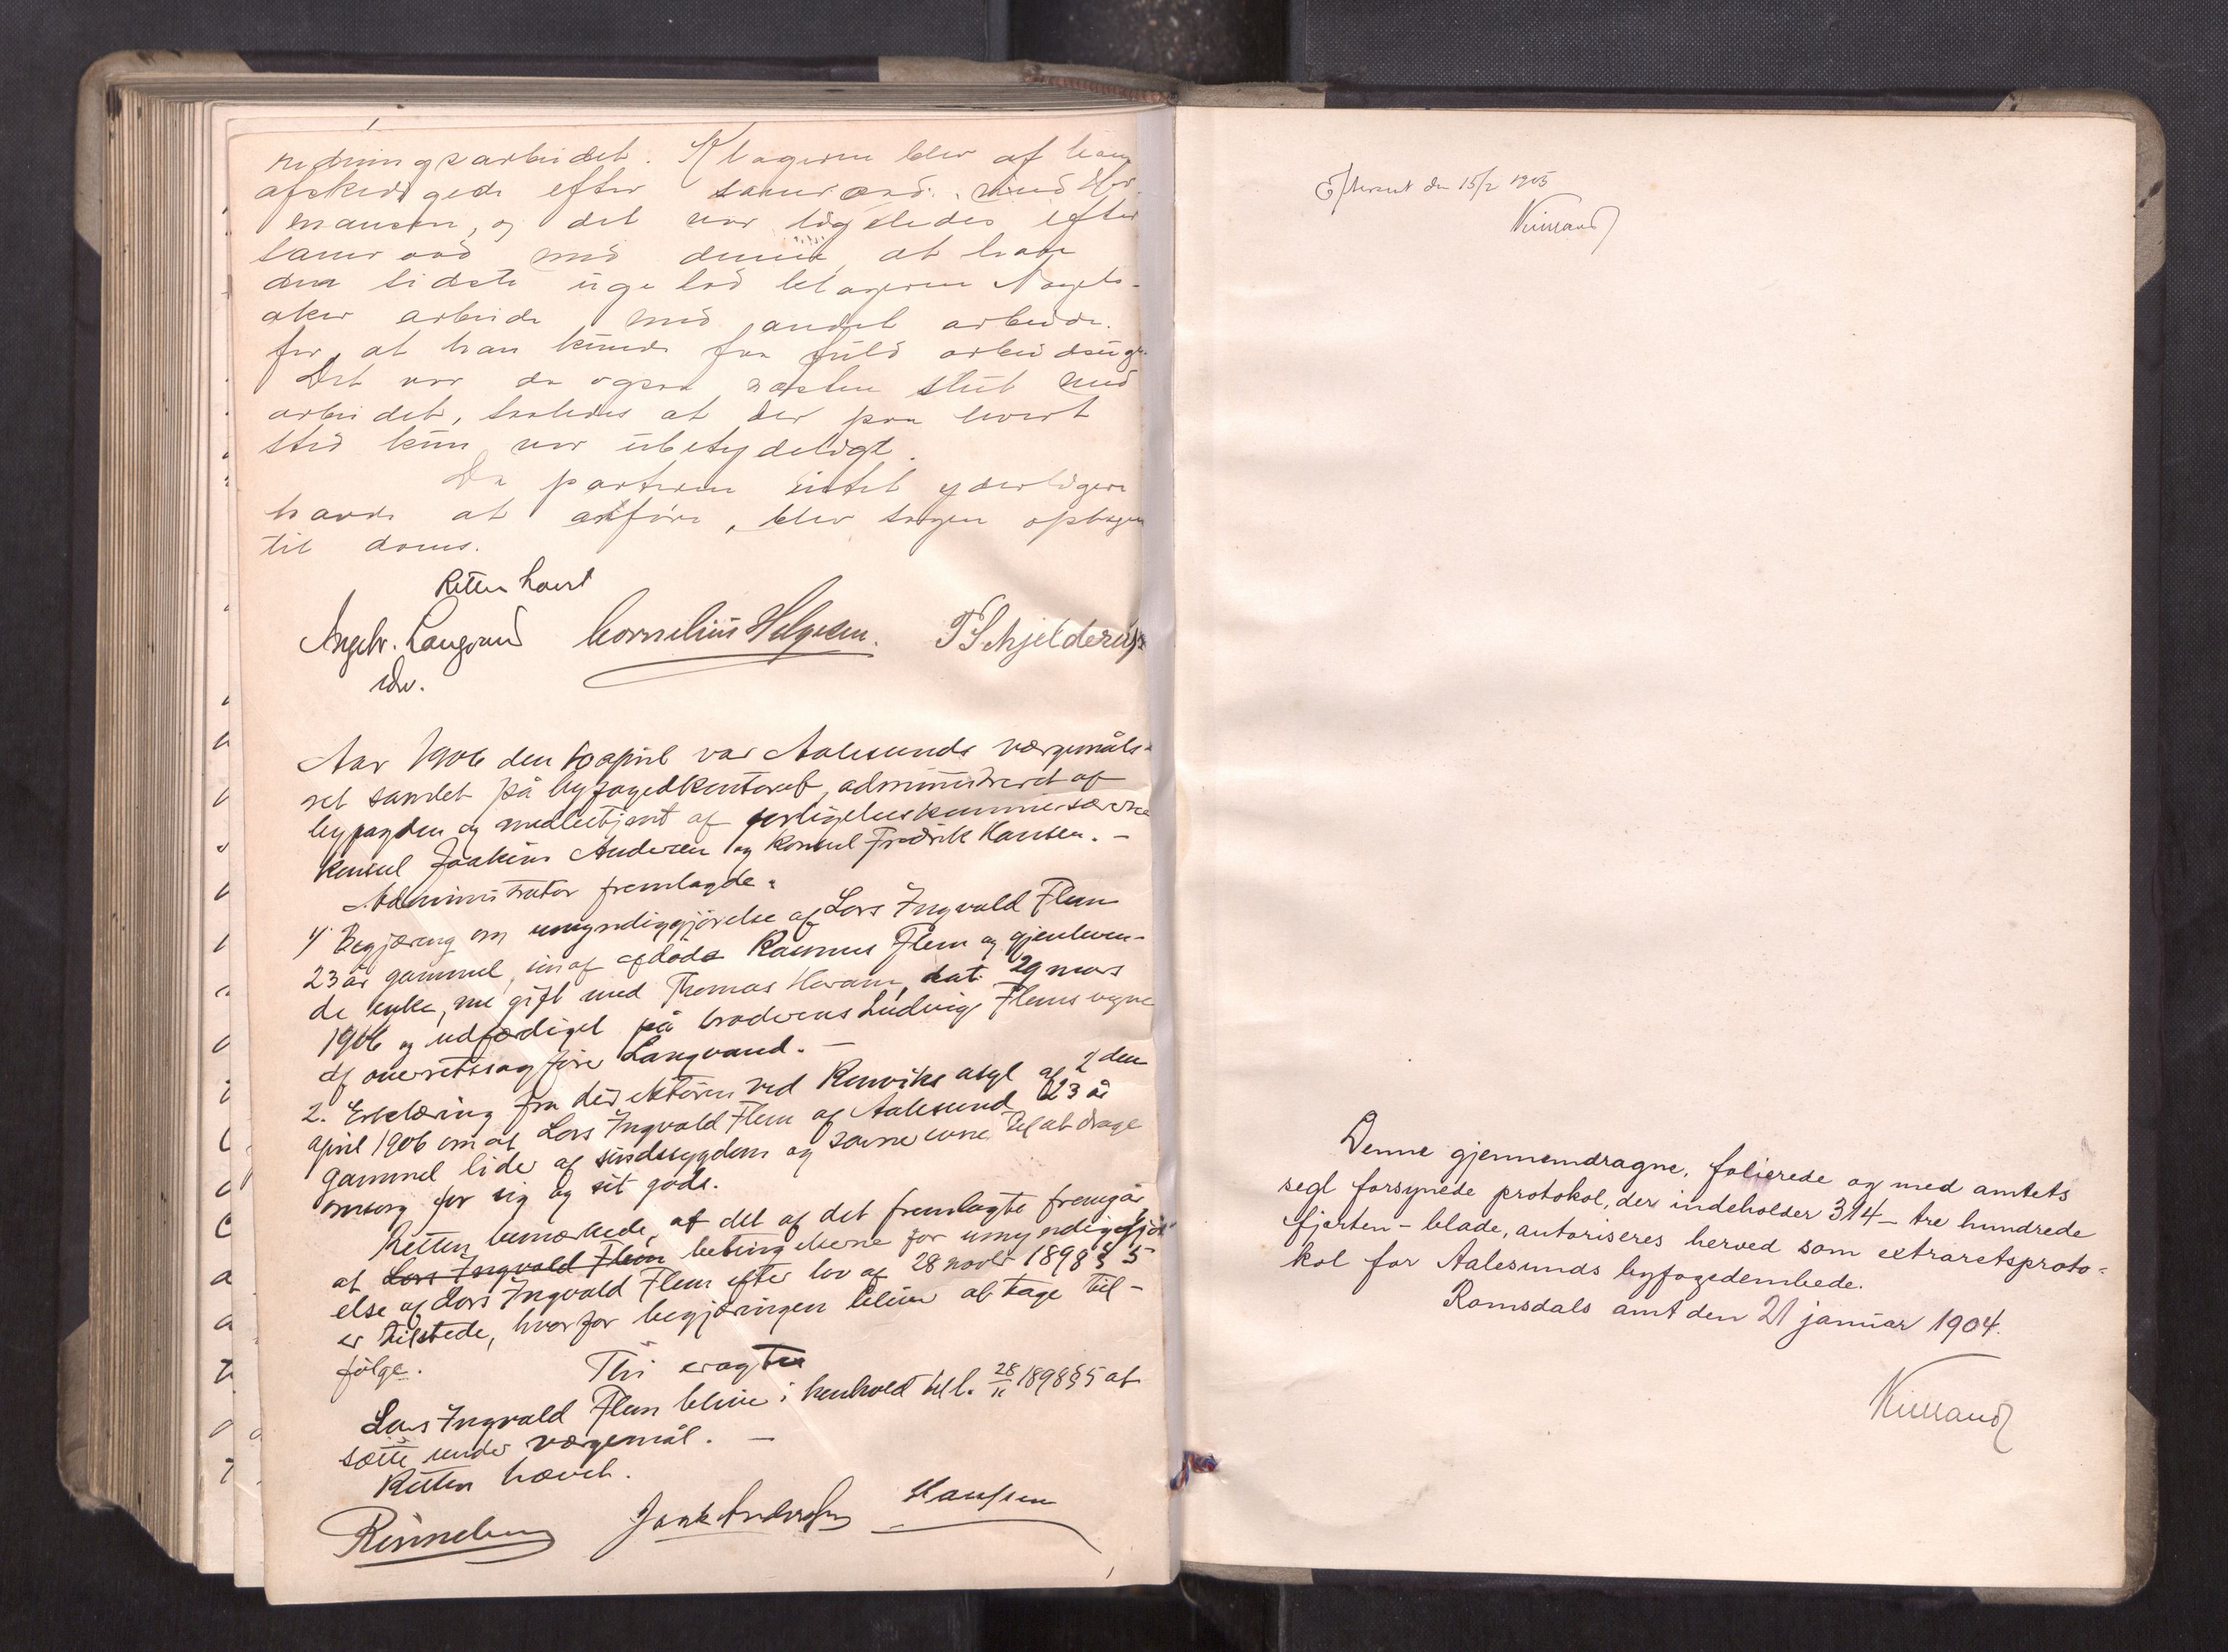 redningsarbeidet. Klageren blev af ham
afskediget efter samraad med Her-
mansen, og det var ligeledes efter
samraad med denne at han
den sidste uge lod klageren
arbeide med andet arbeide.
for at han kunde faa fuld arbeidsuge.
Det var da ogsaa næsten slut med
arbeidet, saaledes at der paa hvert
sted kun var ubetydeligt.
Da parterne intet yderligere
havde at anføre, blev sagen optagen
til doms.
Retten hævet
Angelv. Langvand Cornelius Helgesen. P Schjelderup
Aar 1906 den 10 april var Aalesunds værgemåls-
ret samlet på byfogedkontoret, administreret af
byfogden og medbetjent af forligelseskommissærerne
konsul Joakim Andersen og konsul Fredrik Hansen. -
Administrator fremlagde:
1. Begjæring om umyndiggjørelse af Lars Ingvald Flem
23 år gammel, søn af afdøde Rasmus Flem og gjenleven-
de enke, nu gift med Thomas Haram, dat. 29 mars
1906 og udfærdiget på broderens Ludvig Flems vegne
af overretssagfører Langvand. -
2. Erklæring fra direktøren ved Rønviks asyl af 2 den
april 1906 om at Lars Ingvald Flem af Aalesund 23 år
gammel lider af sindssygdom og savner evne til at drage
omsorg for sig og sit gods.
Retten bemærkede, at det af det fremlagte fremgår
at Lars Ingvald Flem betingelserne for umyndiggjør-
else af Lars Ingvald Flem efter lov af 28 novbr 1898 § 5
er tilstede, hvorfor begjæringen bliver at tage til-
følge.
Thi eragtes
Lars Ingvald Flem bliver i henhold til l. 28/11 1898 § 5 at
sætte under værgemål. -
Retten hævet.
Rinneberg Joak Andersen Hansen
Efterseet den 15/2 1905
Kielland
Denne gjennemdragne, folierede og med amtets
segl forsynede protokol, der indeholder 314 - tre hundrede
fjorten - blade, autoriseres herved som extraretsproto-
kol for Aalesunds byfogedembede.
Romsdals amt den 21 januar 1904.
Kielland